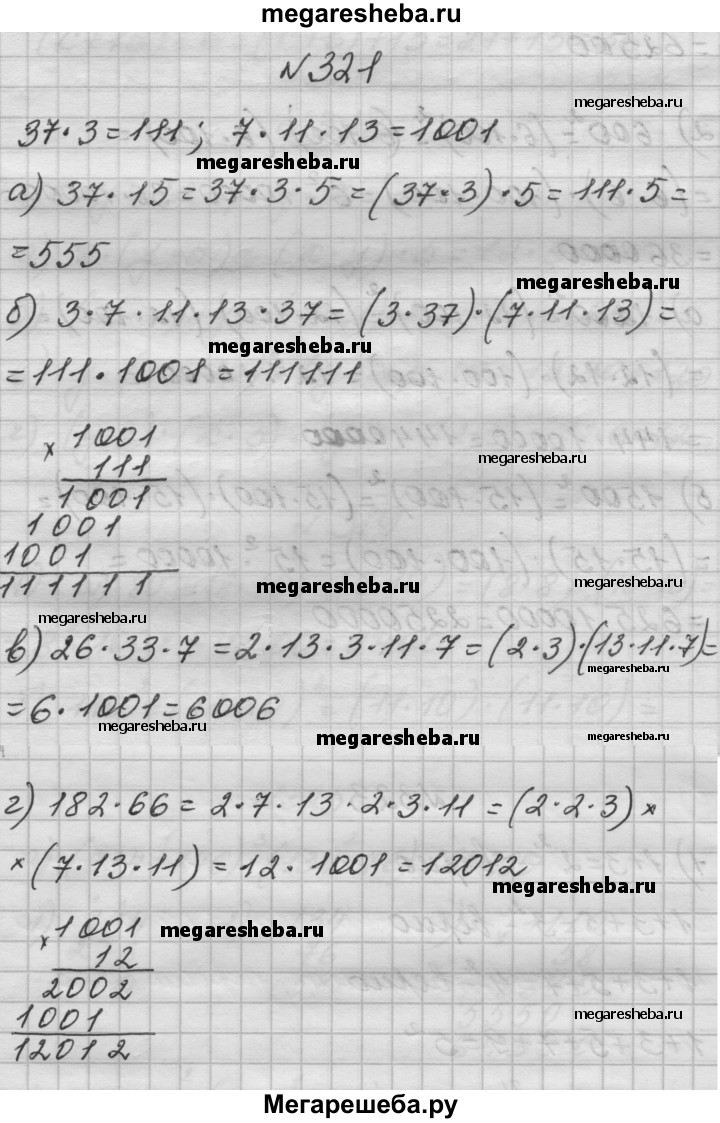 megaresheba.ru
№321
megaresheba.ru
37·3=111; 7·11·13=1001
megaresheba.ru
а) 37·15=37·3·5=(37·3)·5=111·5=
=555
megaresheba.ru
б) 3·7·11·13·37=(3·37)·(7·11·13)=
megaresheba.ru
=111·1001=111111
× 1001
111
megaresheba.ru
1001
1001
1001
111111
megaresheba.ru
megaresheba.ru
megaresheba.ru
в) 26·33·7=2·13·3·11·7=(2·3)·(13·11·7)=
megaresheba.ru
=6·1001=6006
megaresheba.ru
megaresheba.ru
megaresheba.ru
г) 182·66=2·7·13·2·3·11=(2·2·3)×
×(7·13·11)=12·1001=12012
megaresheba.ru
× 1001
megaresheba.ru
12
2002
1001
megaresheba.ru
12012
Мегарешеба.ру